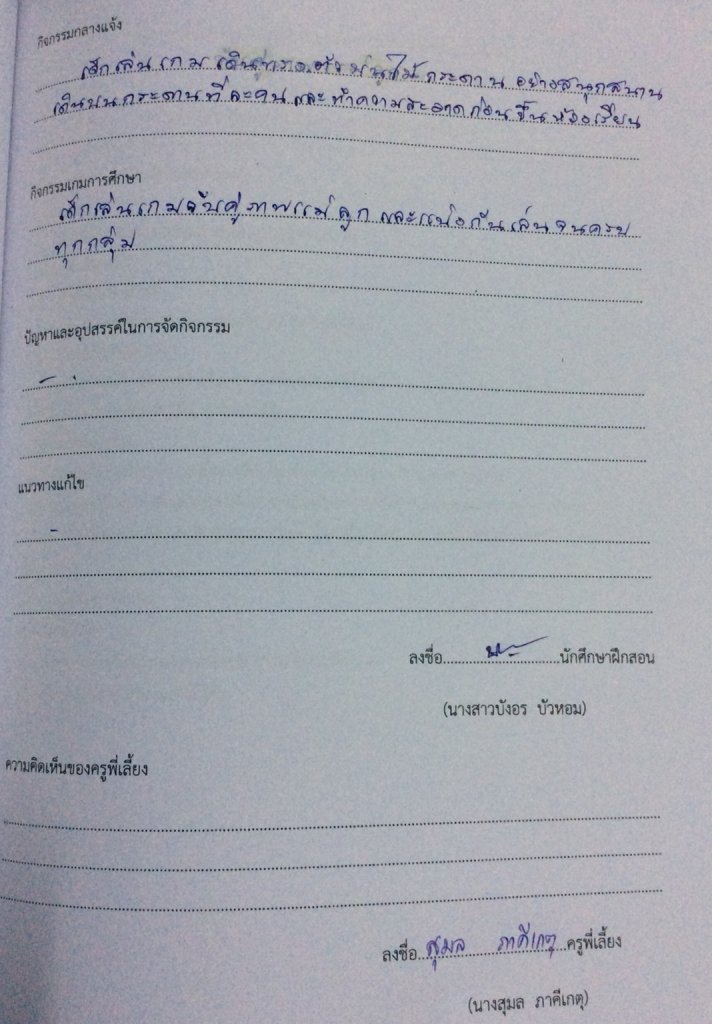 กิจกรรมกลางแจ้ง
เด็กเล่นเกม เดินทรงตัวบนไม้กระดาน อย่างสนุกสนาน
เดินบนกระดานทีละคน และทำความสะอาดก่อนขึ้นห้องเรียน
กิจกรรมเกมการศึกษา
เด็กเล่นเกมจับคู่ภาพแม่ลูก และแบ่งกันเล่นจนครบ
ทุกกลุ่ม
ปัญหาและอุปสรรคในการจัดกิจกรรม
แนวทางแก้ไข
ลงชื่อ..............................นักศึกษาฝึกสอน
(นางสาวบังอร บัวหอม)
ความคิดเห็นของครูพี่เลี้ยง
ลงชื่อ สุมล ภาคีเกตุ ครูพี่เลี้ยง
(นางสุมล ภาคีเกตุ)